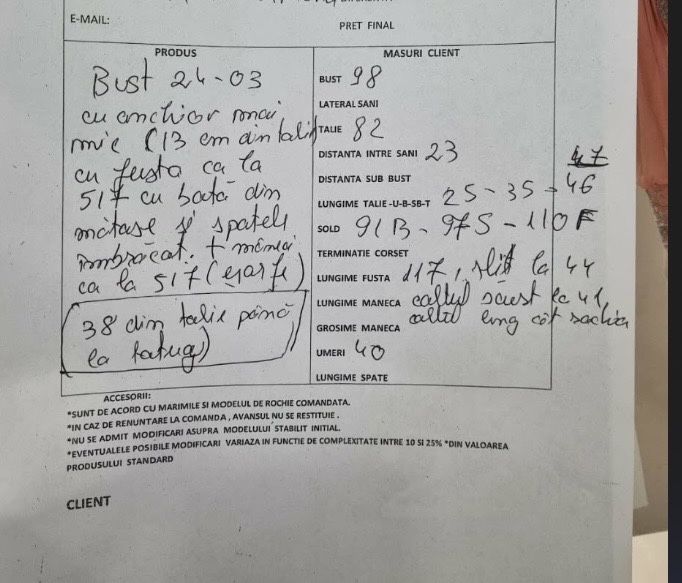 E-MAIL:
PRET FINAL
PRODUS
Bust 24-03
cu anchior mai
mic (13 cm din talie)
cu fusta ca la
517 cu bată din
mătase și spatele
îmbrăcat. + mâneci
ca la 517 (eșarfe)
38 din talie până
la tatuaj)
MASURI CLIENT
BUST 98
LATERAL SANI
TALIE 82
DISTANTA INTRE SANI 23
DISTANTA SUB BUST
47
LUNGIME TALIE -U-B-SB-T 25-35-46
SOLD 91B-97S-110F
TERMINATIE CORSET
LUNGIME FUSTA 117, slit la 44
LUNGIME MANECA coltul scurt la 41,
GROSIME MANECA coltul lung cot
UMERI 40
LUNGIME SPATE
ACCESORII:
*SUNT DE ACORD CU MARIMILE SI MODELUL DE ROCHIE COMANDATA.
*IN CAZ DE RENUNTARE LA COMANDA , AVANSUL NU SE RESTITUIE .
*NU SE ADMIT MODIFICARI ASUPRA MODELULUI STABILIT INITIAL.
*EVENTUALELE POSIBILE MODIFICARI VARIAZA IN FUNCTIE DE COMPLEXITATE INTRE 10 SI 25% *DIN VALOAREA
PRODUSULUI STANDARD
CLIENT